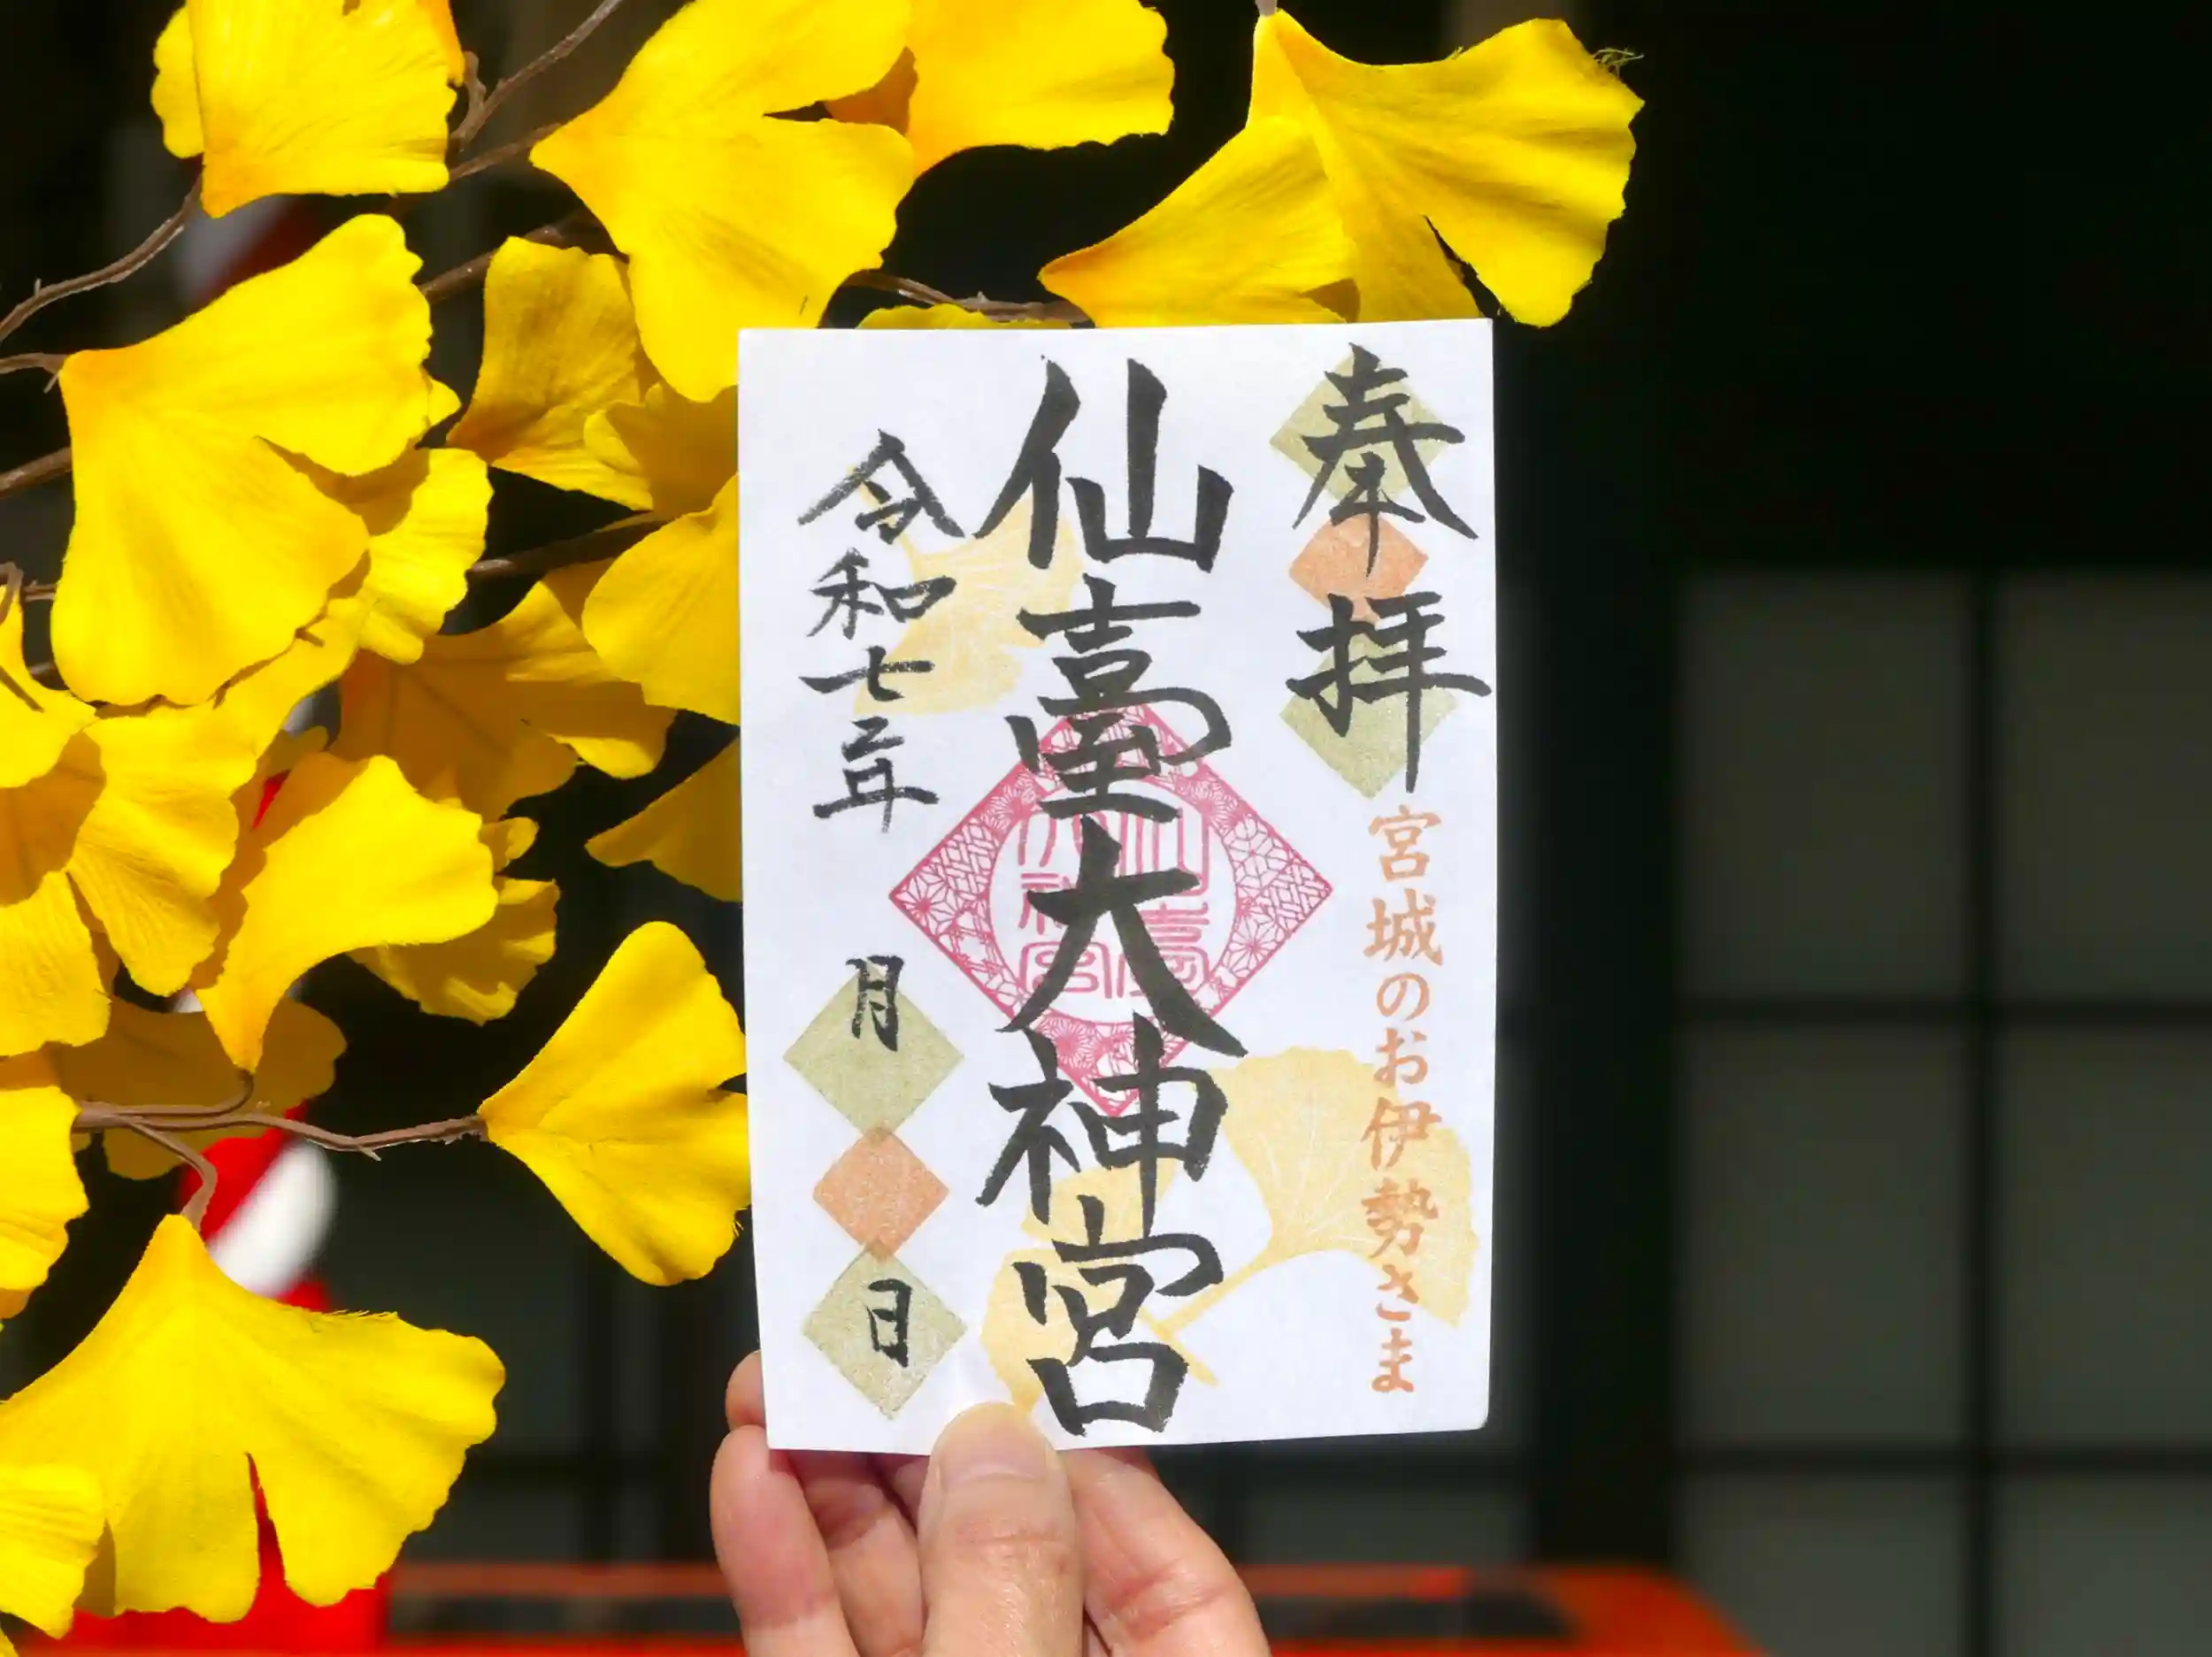 奉拝
宮城のお伊勢さま
仙臺大神宮
仙臺
大神宮
令和七年
月
日